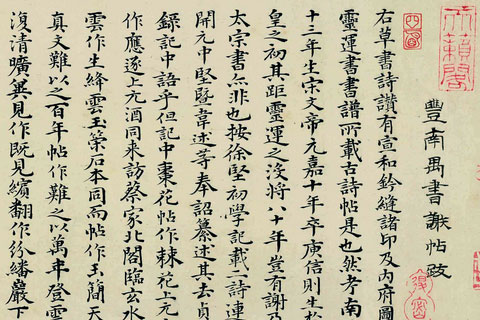 天籟閣
豐南禺書謝帖跋
右草書詩讚有宣和鈐縫諸印及內府圖
靈運書書譜所載古詩帖是也然考南
十三年生宋文帝元嘉十年卒庚信則生於
皇之初其距靈運之没將八十年豈有謝乃
太宗書亦非也按徐堅初學記載二詩連
開元中堅暨韋述等奉詔纂述其去貞
錄記中語乎但記中棗花帖作棘花上元
作應逐上元酒同来訪蔡家北閣臨玄水
雲作生絳雲玉策石本同而帖作玉簡天
真文難以之百年帖作難之以萬年登雲
復清曠無見作既見繽翻作紛繙巖下